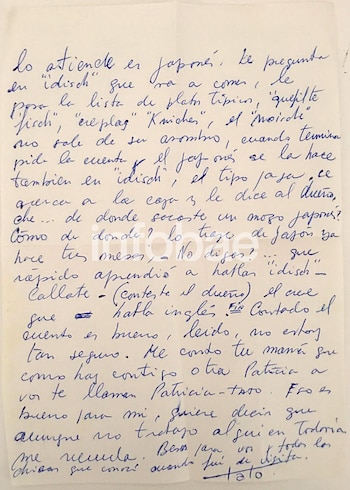 lo atiende es japonés. Le pregunta
en "idisch" que va a comer, le
pasa la lista de platos típicos, "quefilte
fisch", "creplaj" "Kniches", el "moishe"
no sale de su asombro, cuando termina
pide la cuenta y el japonés se la hace
también en "idisch", el tipo paga, se
acerca a la caja y le dice al dueño,
che... de donde sacaste un mozo japonés?
Cómo de donde? lo traje de Japón ya
hace tres meses, - No digas? ... que
rápido aprendió a hablar idisch -
Callate - (contesta el dueño) el cree
que habla inglés. Contado el
cuento es bueno, leido, no estoy
tan seguro. Me contó tu mamá que
como hay contigo otra Patricia a
vos te llaman Patricia-Tato. Eso es
bueno para mi, quiere decir que
aunque no trabajo alguien todavía
me recuerda. Besos para vos y todos los
chicas que conocí cuando fui de visita.
Tato
infobae